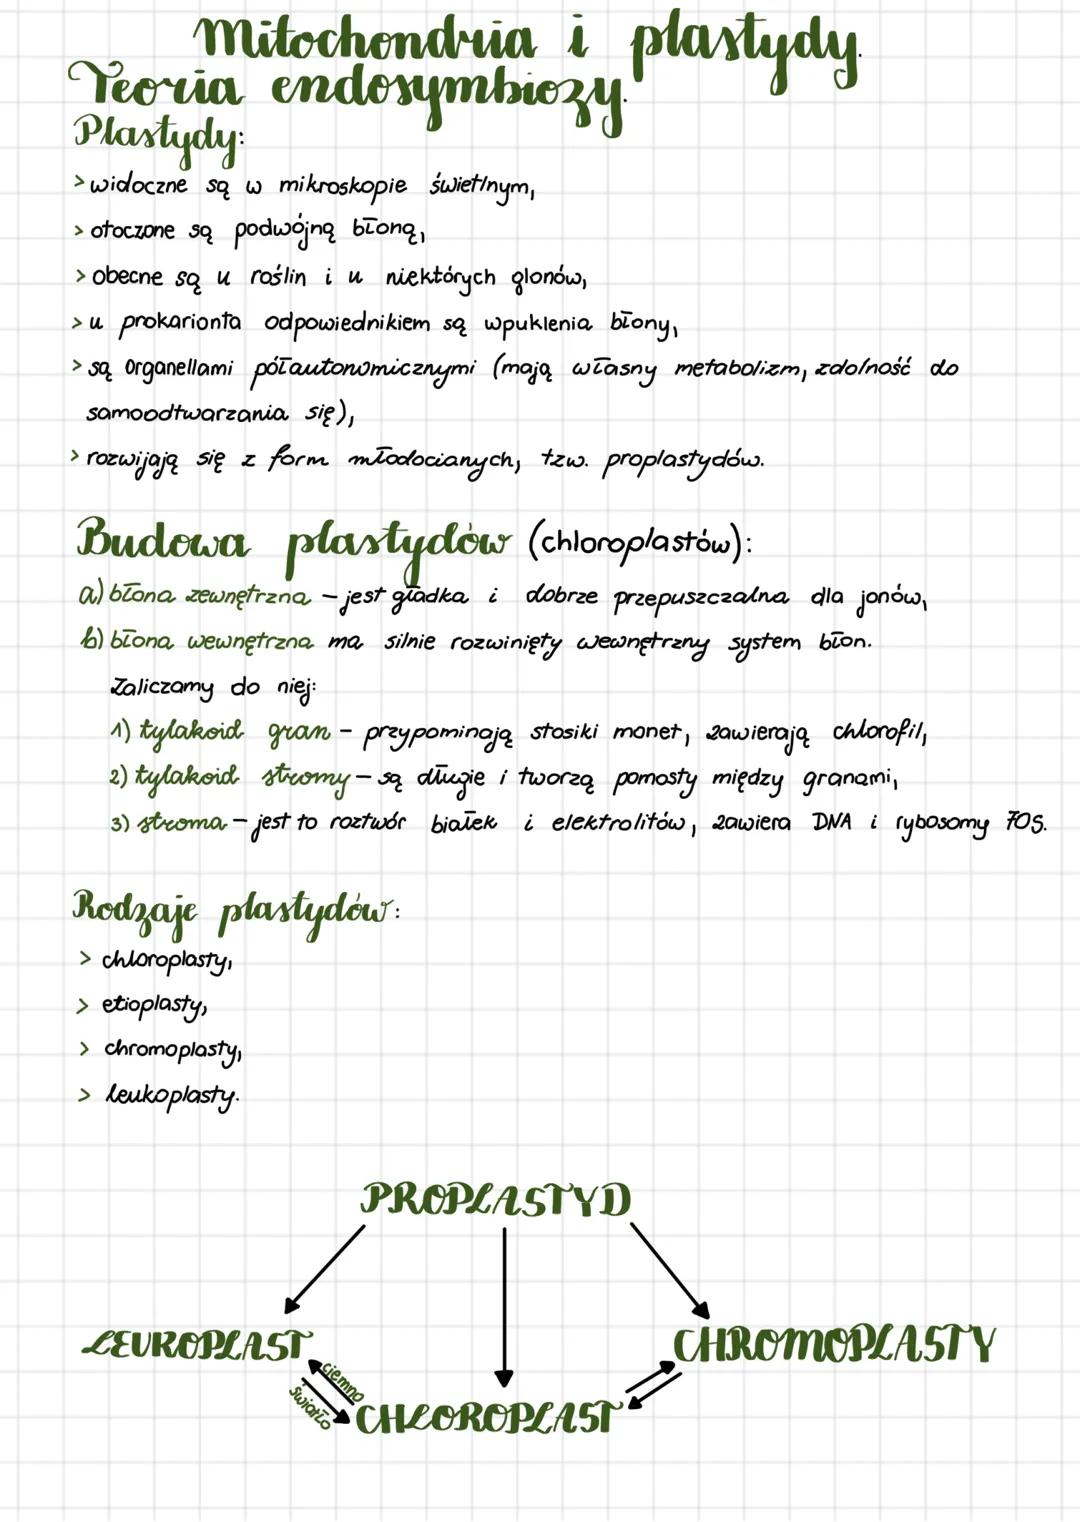 Mitochondria i plastydy.
Teoria endosymbiozy.
Plastydy:
> widoczne są w mikroskopie świetlnym,
> otoczone są podwójną błoną,
> obecne są u roślin i u niektórych glonów,
> u prokarionta odpowiednikiem są wpuklenia błony,
> są organellami półautonomicznymi (mają własny metabolizm, zdolność do
samoodtwarzania się),
> rozwijają się z form młodocianych, tzw. proplastydów.
Budowa plastydów (chloroplastów):
a) błona zewnętrzna – jest gładka i dobrze przepuszczalna dla jonów,
b) błona wewnętrzna ma silnie rozwinięty wewnętrzny system błon.
Zaliczamy do niej:
1) tylakoid gran – przypominają stosiki monet, zawierają chlorofil,
2) tylakoid stromy – są długie i tworzą pomosty między granami,
3) stroma – jest to roztwór białek i elektrolitów, zawiera DNA i rybosomy 70S.
Rodzaje plastydów:
> chloroplasty,
> etioplasty,
> chromoplasty,
> leukoplasty.
PROPLASTYD
LEUKOPLAST
CHROMOPLASTY
ciemno
światło
CHLOROPLAST